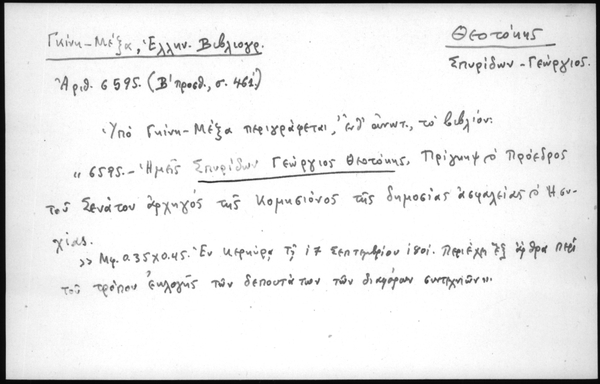 Γκίνη-Μέξα, Ἑλλην. Βιβλιογρ.
Θεοτόκης
Σπυρίδων-Γεώργιος.
Ἀριθ. 6595. (Β' προσθ., σ. 461.)
Ὑπό Γκίνη-Μέξα περιγράφεται, ἔνθ' ἀνωτ., τό βιβλίον:
"6595.- Ἡμεῖς Σπυρίδων Γεώργιος Θεοτόκης, Πρίγκηψ ὁ Πρόεδρος
τοῦ Σενάτου ἀρχηγός τῆς Κομησιόνος τῆς δημοσίας ἀσφαλείας ὁ Ἡσυ-
χίας.
>> Μφ. 0.35×0.45. Ἐν Κερκύρᾳ Τῇ 17 Σεπτεμβρίου 1801. Περιέχει ἓξ ἄρθρα περί
τοῦ τρόπου ἐκλογῆς τῶν δεπουτάτων τῶν διαφόρων συντεχνιῶν".